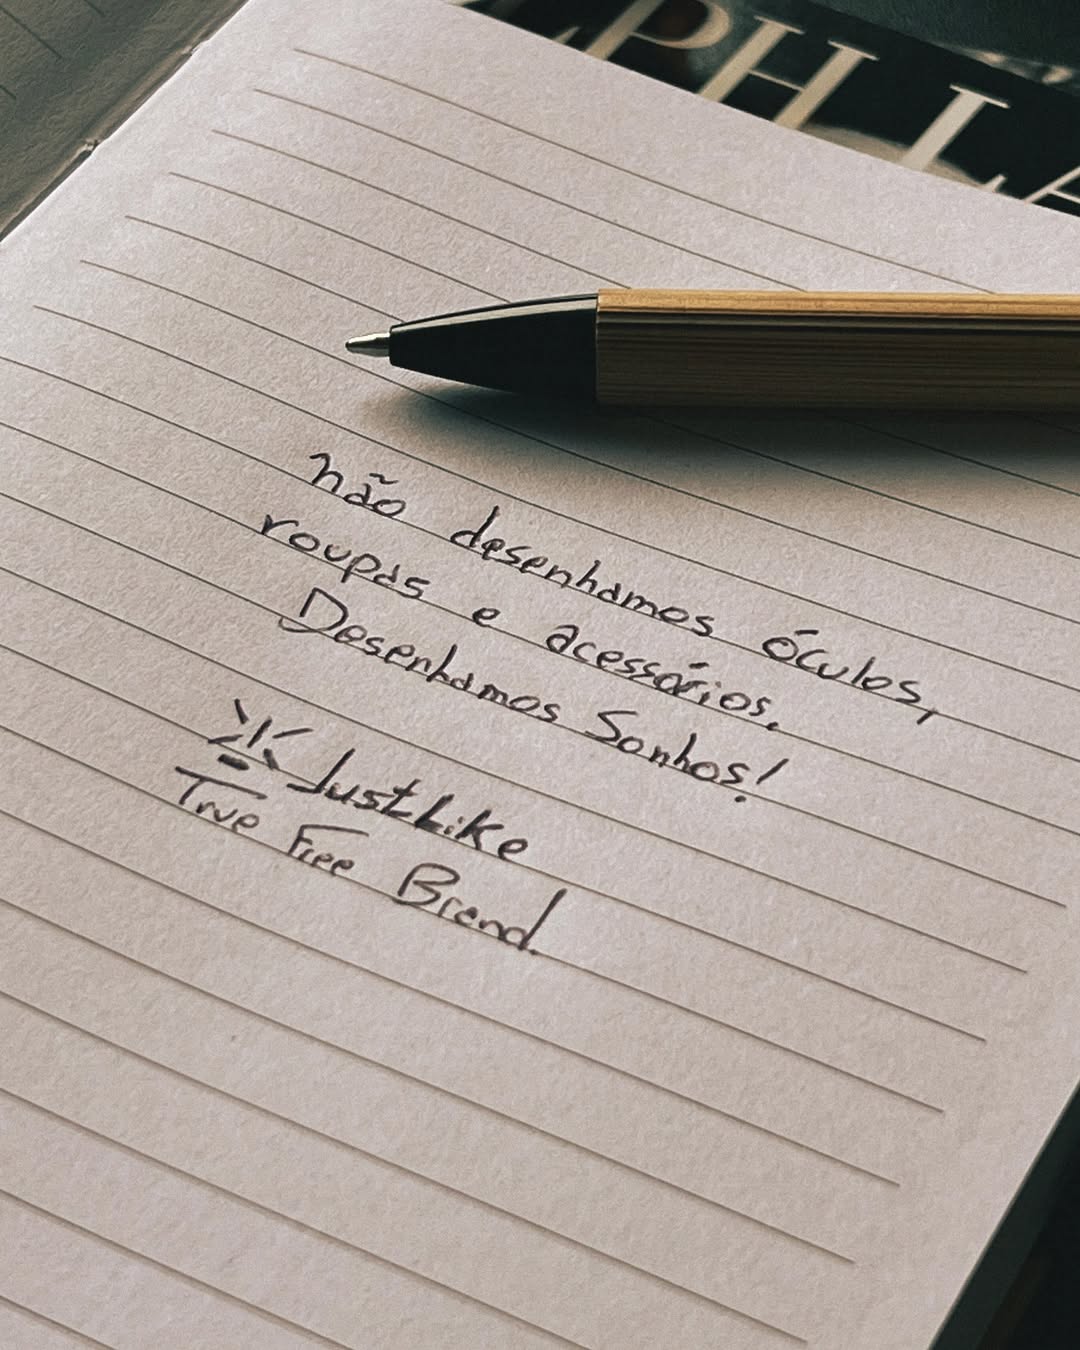 PHIL
não desenhamos óculos,
roupas e acessórios.
Desenhamos Sonhos!
JustLike
True Free Brand.